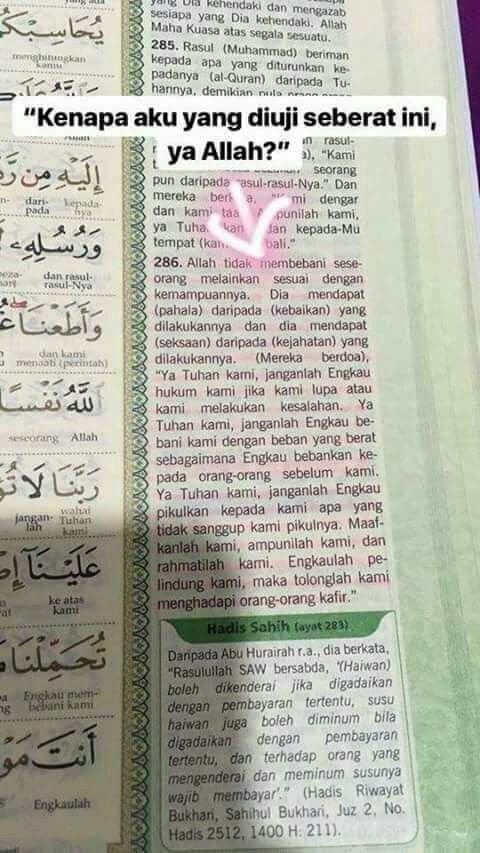 yang Dia kehendaki dan mengazab
sesiapa yang Dia kehendaki. Allah
Maha Kuasa atas segala sesuatu.
285. Rasul (Muhammad) beriman
kepada apa yang diturunkan ke-
padanya (al-Quran) daripada Tu-
hannya, demikian pula orang-orang
“Kenapa aku yang diuji seberat ini,
ya Allah?”
rasul-
“Kami
seorang
pun daripada rasul-rasul-Nya.” Dan
mereka dengar
dan kami
ya Tuhan dan kepada-Mu
tempat
286. Allah tidak membebani sese-
orang melainkan sesuai dengan
kemampuannya. Dia mendapat
(pahala) daripada (kebaikan) yang
dilakukannya dan dia mendapat
(seksaan) daripada (kejahatan) yang
dilakukannya. (Mereka berdoa),
“Ya Tuhan kami, janganlah Engkau
hukum kami jika kami lupa atau
kami melakukan kesalahan. Ya
Tuhan kami, janganlah Engkau be-
bani kami dengan beban yang berat
sebagaimana Engkau bebankan ke-
pada orang-orang sebelum kami.
Ya Tuhan kami, janganlah Engkau
pikulkan kepada kami apa yang
tidak sanggup kami pikulnya. Maaf-
kanlah kami, ampunilah kami, dan
rahmatilah kami. Engkaulah pe-
lindung kami, maka tolonglah kami
menghadapi orang-orang kafir.”
Hadis Sahih (ayat 283)
Daripada Abu Hurairah r.a., dia berkata,
“Rasulullah SAW bersabda, ‘(Haiwan)
boleh dikenderai jika digadaikan
dengan pembayaran tertentu, susu
haiwan juga boleh diminum bila
digadaikan dengan pembayaran
tertentu, dan terhadap orang yang
mengenderai dan meminum susunya
wajib membayar’.” (Hadis Riwayat
Bukhari, Sahihul Bukhari, Juz 2, No.
Hadis 2512, 1400 H: 211).
يُحَاسِبْكُمْ
menghitungkan
kamu
إِلَيْهِ مِن
dari- kepada-
pada nya
وَرُسُلِهِ
dan rasul-
rasul-Nya
وَأَطَعْنَا
dan kami
menaati (perintah)
اللَّهُ نَفْسًا
seseorang Allah
رَبَّنَا لَا
jangan- wahai
lah Tuhan
kami
عَلَيْنَا
ke atas
kami
تُحَمِّلْنَا
Engkau mem-
bebani kami
أَنتَ
Engkaulah